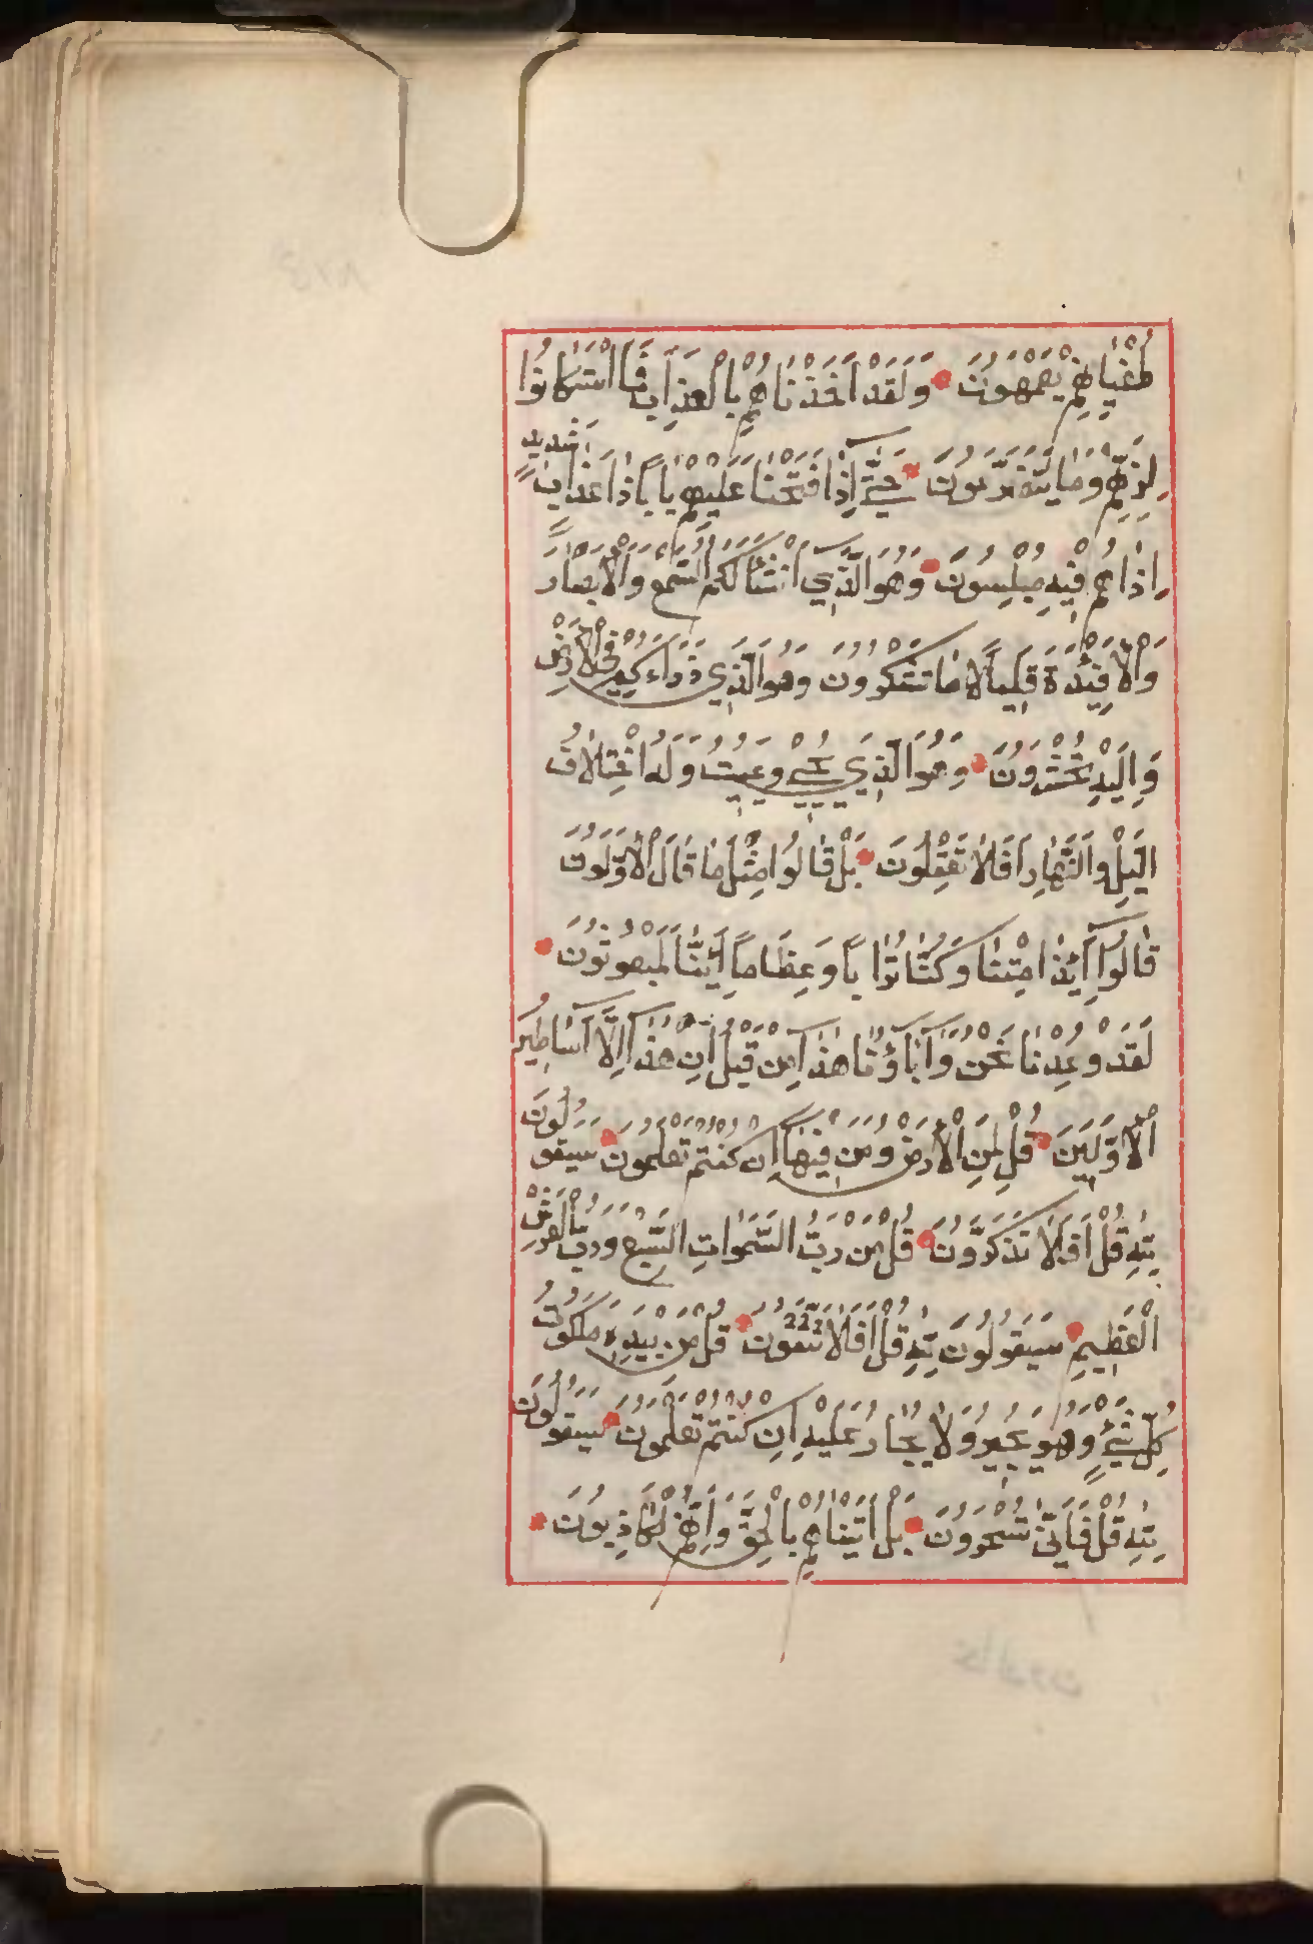 طُغْيَانِهِمْ يَعْمَهُونَ وَلَقَدْ اَخَذْنَاهُمْ بِالْعَذَابِ فَمَا اسْتَكَانُوا
لِرَبِّهِمْ وَمَا يَتَضَرَّعُونَ حَتّٰٓى اِذَا فَتَحْنَا عَلَيْهِمْ بَابًا ذَا عَذَابٍ شَدِيدٍ
اِذَا هُمْ فِيْهِ مُبْلِسُونَ وَهُوَ الَّذِي اَنْشَاَ لَكُمُ السَّمْعَ وَالْاَبْصَارَ
وَالْاَفْئِدَةَ قَلِيلًا مَا تَشْكُرُونَ وَهُوَ الَّذِي ذَرَاَكُمْ فِي الْاَرْضِ
وَاِلَيْهِ تُحْشَرُونَ وَهُوَ الَّذِي يُحْيِي وَيُمِيتُ وَلَهُ اخْتِلَافُ
الَّيْلِ وَالنَّهَارِ اَفَلَا تَعْقِلُونَ بَلْ قَالُوا مِثْلَ مَا قَالَ الْاَوَّلُونَ
قَالُوٓا ءَاِذَا مِتْنَا وَكُنَّا تُرَابًا وَعِظَامًا ءَاِنَّا لَمَبْعُوثُونَ
لَقَدْ وُعِدْنَا نَحْنُ وَاٰبَآؤُنَا هٰذَا مِنْ قَبْلُ اِنْ هٰذَآ اِلَّآ اَسَاطِيرُ
الْاَوَّلِينَ قُلْ لِمَنِ الْاَرْضُ وَمَنْ فِيْهَآ اِنْ كُنْتُمْ تَعْلَمُونَ سَيَقُولُونَ
لِلّٰهِ قُلْ اَفَلَا تَذَكَّرُونَ قُلْ مَنْ رَبُّ السَّمٰوَاتِ السَّبْعِ وَرَبُّ الْعَرْشِ
الْعَظِيمِ سَيَقُولُونَ لِلّٰهِ قُلْ اَفَلَا تَتَّقُونَ قُلْ مَنْ بِيَدِهِ مَلَكُوتُ
كُلِّ شَيْءٍ وَهُوَ يُجِيرُ وَلَا يُجَارُ عَلَيْهِ اِنْ كُنْتُمْ تَعْلَمُونَ سَيَقُولُونَ
لِلّٰهِ قُلْ فَاَنّٰى تُسْحَرُونَ بَلْ اَتَيْنَاهُمْ بِالْحَقِّ وَاِنَّهُمْ لَكَاذِبُونَ